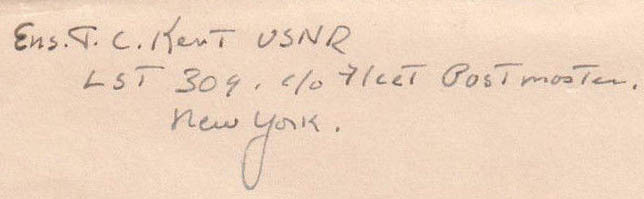 Ens. T. C. Kent USNR
LST 309. c/o Fleet Postmaster.
New York.